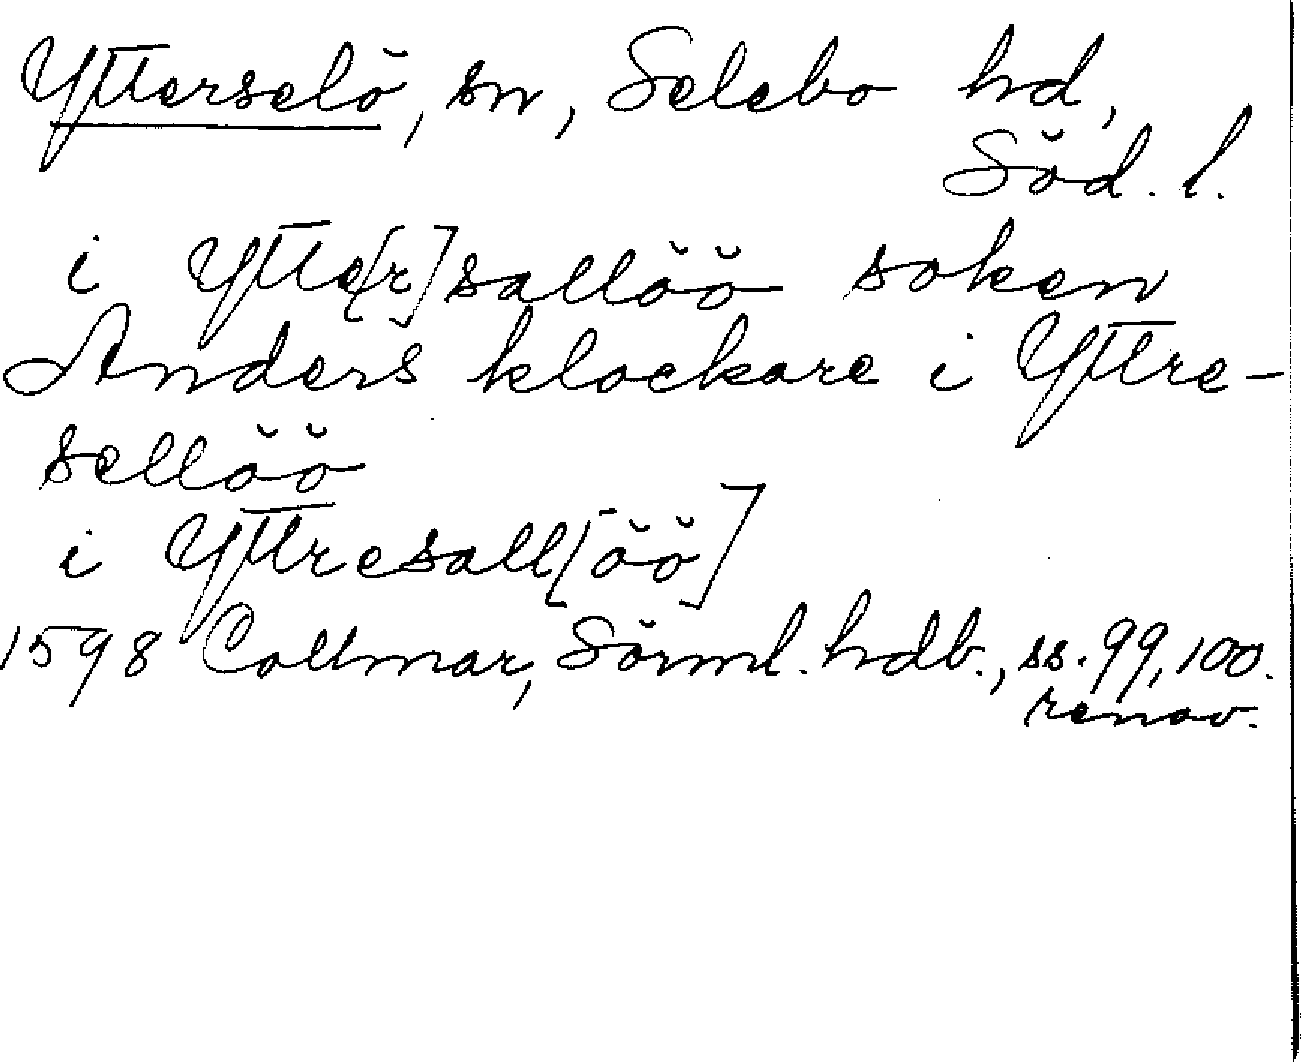 Ytterselö, sn, Selebo hd,
Söd. l.
i Ytte[r]sallöö soken
Anders klockare i Yttre-
sellöö
i Yttresall[öö]
1598 Collmar, Sörml. hdb., ss. 99, 100.
renov.